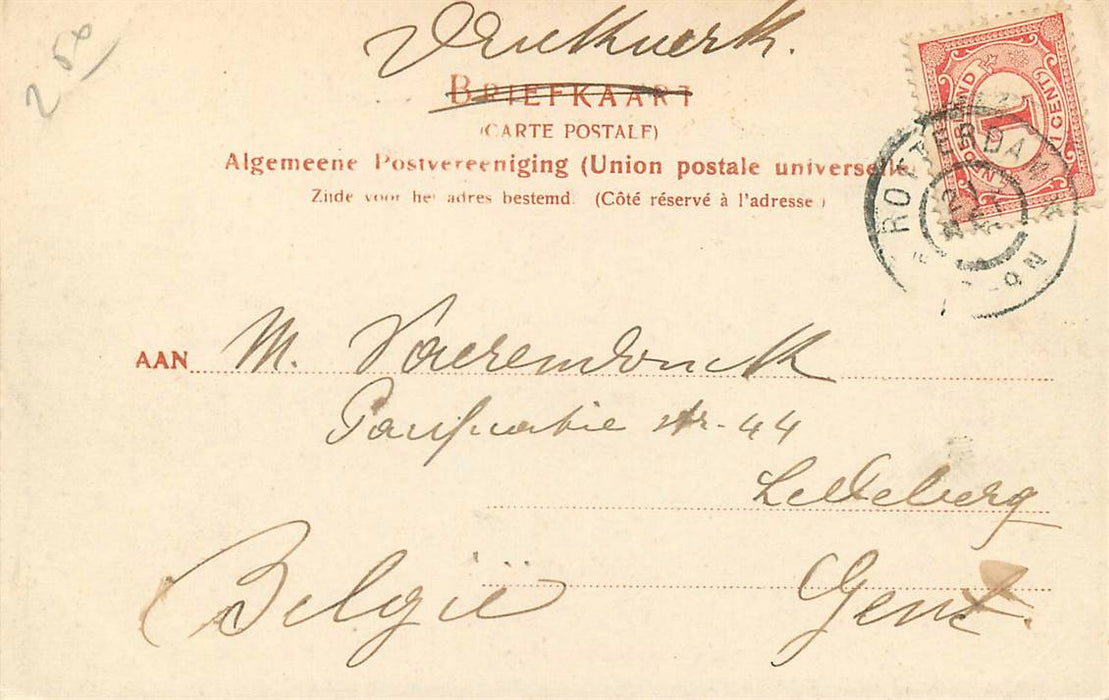 2 50
Drukwerk.
BRIEFKAART
(CARTE POSTALE)
Algemeene Postvereeniging (Union postale universelle)
Zijde voor het adres bestemd. (Côté réservé à l'adresse)
NEDERLAND
1
1 CENT
ROTTERDAM
21
AAN M. Vaerendonck
str. 44
Ledeberg
België Gent.